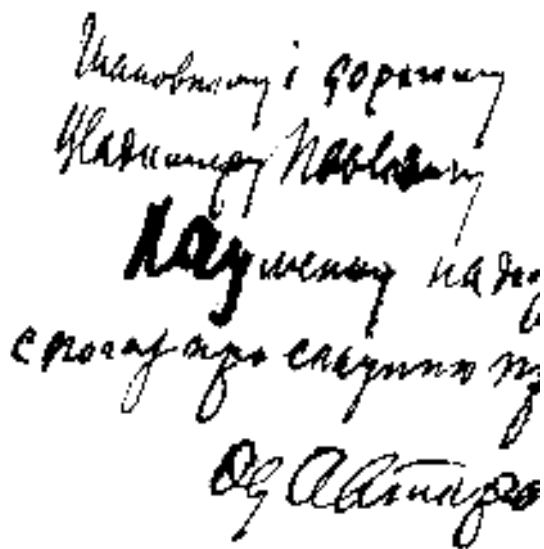 Шановному і дорогому
Владимеру Павловичу
Науменку на до
спогад про спільню пр
Од Автаро